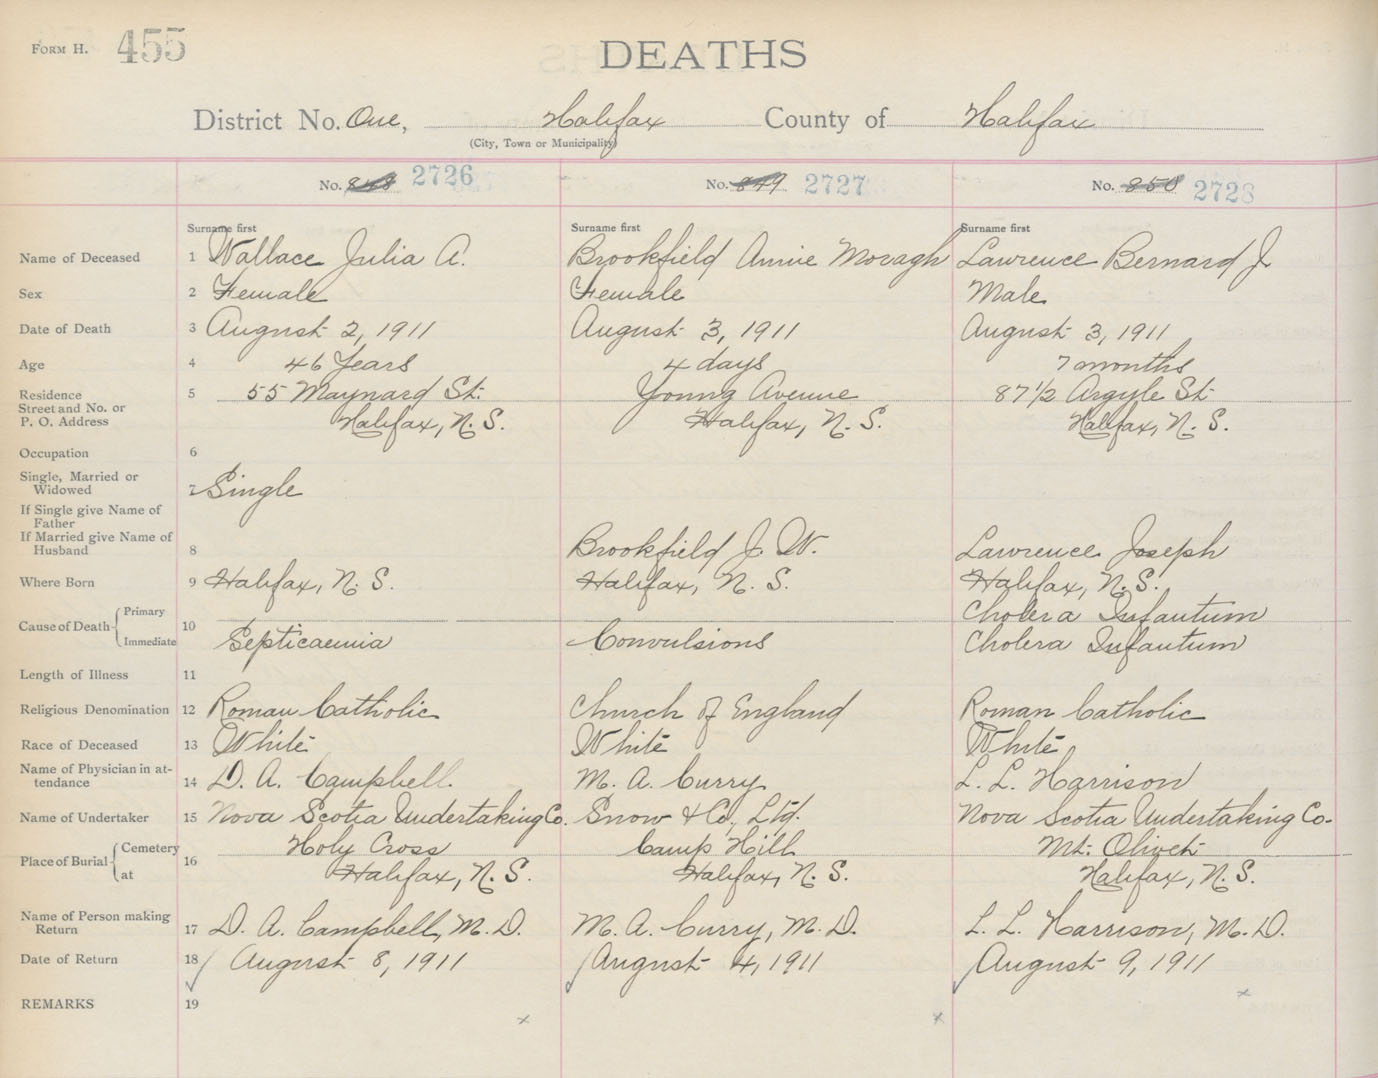 FORM H. 455
DEATHS
District No. One, Halifax County of Halifax
(City, Town or Municipality)
No. 848 2726 No. 849 2727 No. 850 2728
Surname first Surname first Surname first
Name of Deceased 1 Wallace Julia A. Brookfield Annie Movagh Lawrence Bernard J
Sex 2 Female Female Male
Date of Death 3 August 2, 1911 August 3, 1911 August 3, 1911
Age 4 46 Years 4 days 7 months
Residence 5 55 Maynard St. Young Avenue 87 1/2 Argyle St
Street and No. or
P. O. Address Halifax, N. S. Halifax, N. S. Halifax, N. S.
Occupation 6
Single, Married or
Widowed 7 Single
If Single give Name of
Father
If Married give Name of
Husband 8 Brookfield J. W. Lawrence Joseph
Where Born 9 Halifax, N. S. Halifax, N. S. Halifax, N. S.
Cause of Death 10 Primary Cholera Infantum
Immediate Septicaemia Convulsions Cholera Infantum
Length of Illness 11
Religious Denomination 12 Roman Catholic Church of England Roman Catholic
Race of Deceased 13 White White White
Name of Physician in at-
tendance 14 D. A. Campbell M. A. Curry L. L. Harrison
Name of Undertaker 15 Nova Scotia Undertaking Co. Snow & Co, Ltd. Nova Scotia Undertaking Co-
Place of Burial 16 Cemetery Holy Cross Camp Hill Mt. Olivet
at Halifax, N. S. Halifax, N. S. Halifax, N. S.
Name of Person making
Return 17 D. A. Campbell, M. D. M. A. Curry, M. D. L. L. Harrison, M. D.
Date of Return 18 August 8, 1911 August 4, 1911 August 9, 1911
REMARKS 19